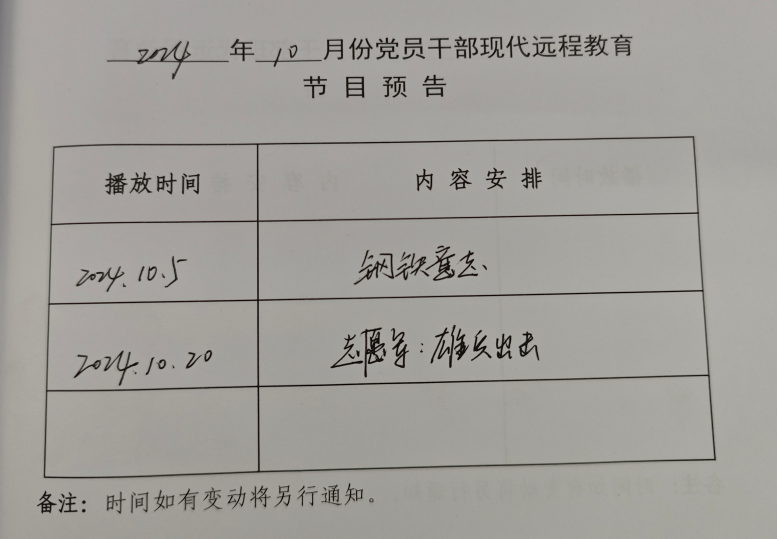 2024年10月份党员干部现代远程教育
节目预告
播放时间 内容安排
2024.10.5 钢铁意志
2024.10.20 志愿军:雄兵出击
备注:时间如有变动将另行通知。